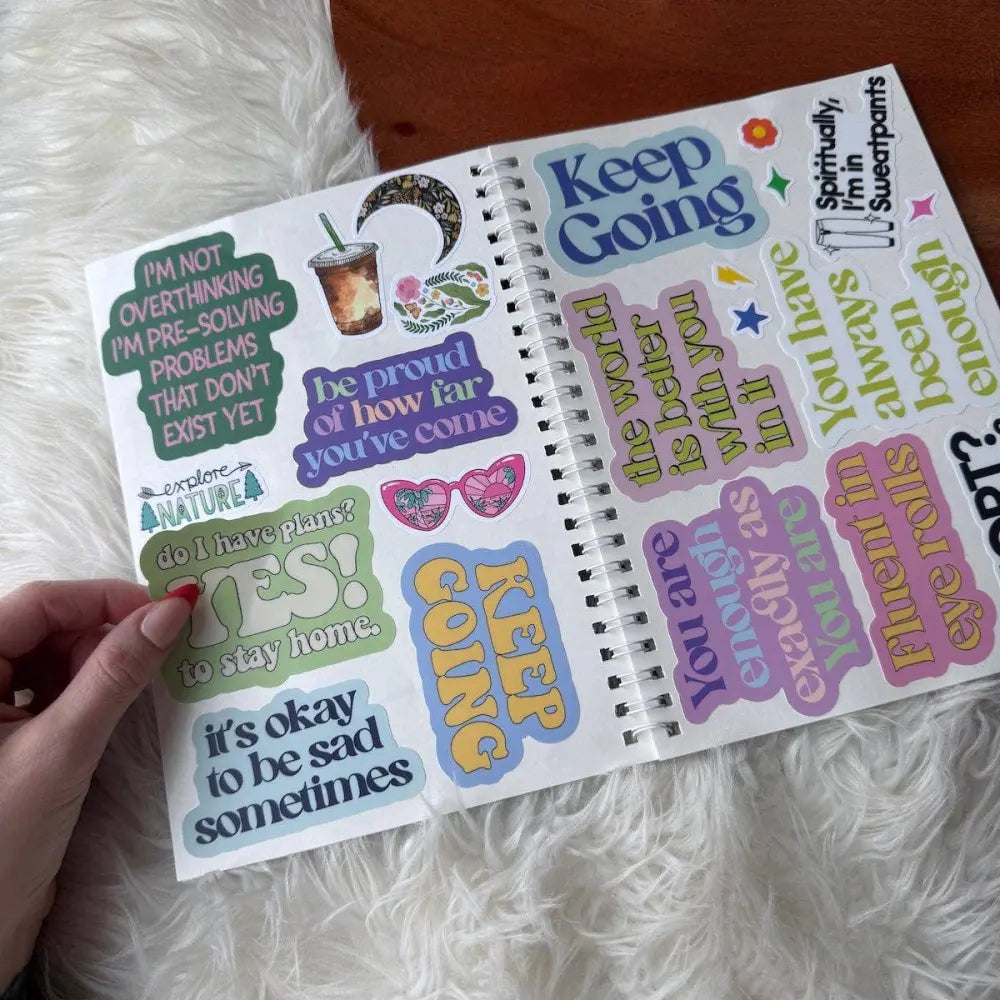 I'M NOT
OVERTHINKING
I'M PRE-SOLVING
PROBLEMS
THAT DON'T
EXIST YET
be proud
of how far
you've come
explore
NATURE
do I have plans?
YES!
to stay home.
KEEP
GOING
it's okay
to be sad
sometimes
Keep
Going
Spiritually,
I'm in
Sweatpants
the world
is better
with you
in it
You have
always
been
enough
You are
enough
exactly as
You are
Fluent in
eye rolls